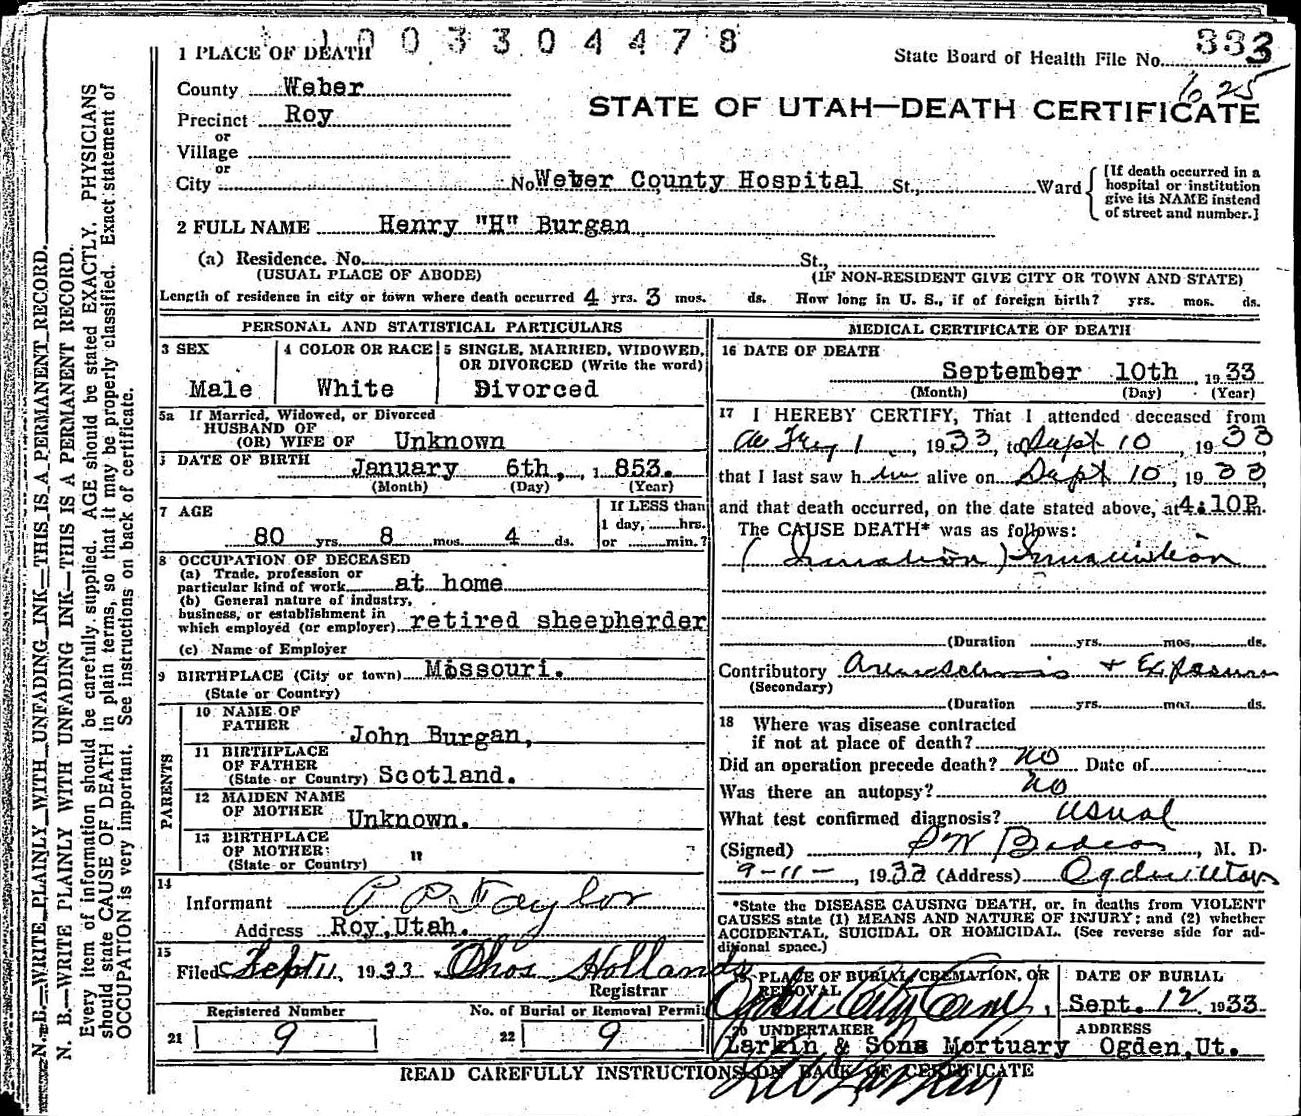 1003304478
1 PLACE OF DEATH
State Board of Health File No. 333
625
County Weber
STATE OF UTAH—DEATH CERTIFICATE
Precinct Roy
or
Village
or
City No Weber County Hospital St., Ward
[If death occurred in a hospital or institution give its NAME instead of street and number.]
2 FULL NAME Henry "H" Burgan
(a) Residence. No. St.,
(USUAL PLACE OF ABODE) (IF NON-RESIDENT GIVE CITY OR TOWN AND STATE)
Length of residence in city or town where death occurred 4 yrs. 3 mos. ds. How long in U. S., if of foreign birth? yrs. mos. ds.
PERSONAL AND STATISTICAL PARTICULARS
3 SEX
Male
4 COLOR OR RACE
White
5 SINGLE, MARRIED, WIDOWED, OR DIVORCED (Write the word)
Divorced
5a If Married, Widowed, or Divorced
HUSBAND OF
(OR) WIFE OF Unknown
DATE OF BIRTH January 6th, 1853.
(Month) (Day) (Year)
7 AGE
80 yrs. 8 mos. 4 ds.
If LESS than
1 day, hrs.
or min.?
8 OCCUPATION OF DECEASED
(a) Trade, profession or
particular kind of work at home
(b) General nature of industry,
business, or establishment in
which employed (or employer) retired sheepherder
(c) Name of Employer
9 BIRTHPLACE (City or town) Missouri.
(State or Country)
PARENTS
10 NAME OF
FATHER John Burgan,
11 BIRTHPLACE
OF FATHER
(State or Country) Scotland.
12 MAIDEN NAME
OF MOTHER Unknown.
13 BIRTHPLACE
OF MOTHER
(State or Country) "
14
Informant Taylor
Address Roy, Utah.
15
Filed Sept 11, 1933, Thos Hollands
Registrar
Registered Number
21 9
No. of Burial or Removal Permit
22 9
MEDICAL CERTIFICATE OF DEATH
16 DATE OF DEATH
September 10th, 1933
(Month) (Day) (Year)
17 I HEREBY CERTIFY, That I attended deceased from
1, 1933, to Sept 10, 1933
that I last saw him alive on Sept 10, 1933,
and that death occurred, on the date stated above, at 4:10P.m.
The CAUSE DEATH* was as follows:
(Duration yrs. mos. ds.
Contributory + Exposure
(Secondary)
(Duration yrs. mos. ds.
18 Where was disease contracted
if not at place of death?
Did an operation precede death? no Date of
Was there an autopsy? no
What test confirmed diagnosis? usual
(Signed) , M. D.
9-11-, 1933 (Address) Ogden Utah
*State the DISEASE CAUSING DEATH, or, in deaths from VIOLENT
CAUSES state (1) MEANS AND NATURE OF INJURY; and (2) whether
ACCIDENTAL, SUICIDAL OR HOMICIDAL. (See reverse side for ad-
ditional space.)
19 PLACE OF BURIAL, CREMATION, OR
REMOVAL
Ogden City Cem,
DATE OF BURIAL
Sept. 12 1933
20 UNDERTAKER
Larkin & Sons Mortuary
ADDRESS
Ogden, Ut.
READ CAREFULLY INSTRUCTIONS ON BACK OF CERTIFICATE
N. B.—WRITE PLAINLY WITH UNFADING INK—THIS IS A PERMANENT RECORD.
N. B.—WRITE PLAINLY WITH UNFADING INK—THIS IS A PERMANENT RECORD.
Every item of information should be carefully supplied. AGE should be stated EXACTLY. PHYSICIANS
should state CAUSE OF DEATH in plain terms, so that it may be properly classified. Exact statement of
OCCUPATION is very important. See instructions on back of certificate.